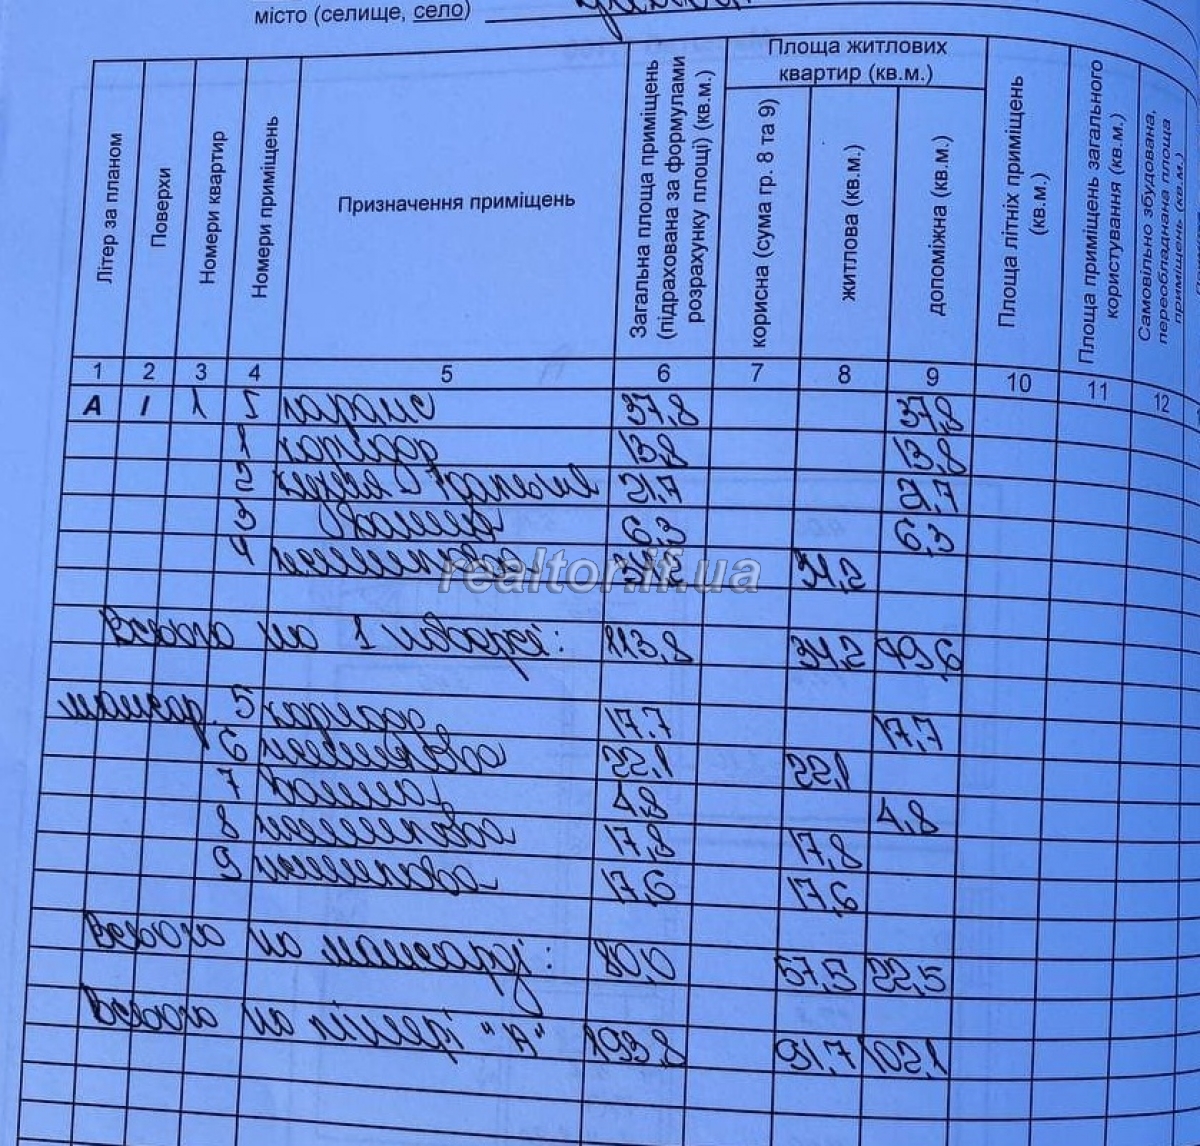 місто (селище, село)
Літер за планом
Поверхи
Номери квартир
Номери приміщень
Призначення приміщень
Загальна площа приміщень (підрахована за формулами розрахунку площі) (кв.м.)
Площа житлових квартир (кв.м.)
корисна (сума гр. 8 та 9)
житлова (кв.м.)
допоміжна (кв.м.)
Площа літніх приміщень (кв.м.)
Площа приміщень загального користування (кв.м.)
Самовільно збудована, переобладнана площа приміщень (кв.м.)
1 2 3 4 5 6 7 8 9 10 11 12
А І 1 І гараж 37,8 37,8
1 коридор 13,8 13,8
2 кухня - їдальня 21.7 21,7
3 ванна 6,3 6,3
4 житлова 34,2 34,2
realtor.if.ua
Всього по 1 поверсі: 113,8 34,2 79,6
мансар. 5 коридор 17.7 17,7
6 житлова 22,1 22,1
7 ванна 4,8 4,8
8 житлова 17,8 17,8
9 житлова 17,6 17,6
Всього по мансарді: 80,0 57,5 22,5
Всього по літері "А" 193,8 91,7 102,1